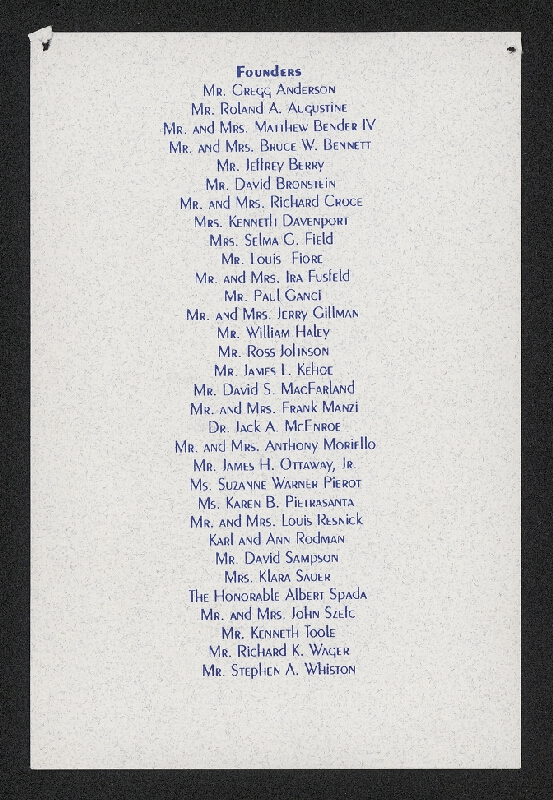 Founders
Mr. Gregg Anderson
Mr. Roland A. Augustine
Mr. and Mrs. Matthew Bender IV
Mr. and Mrs. Bruce W. Bennett
Mr. Jeffrey Berry
Mr. David Bronstein
Mr. and Mrs. Richard Croce
Mrs. Kenneth Davenport
Mrs. Selma G. Field
Mr. Louis Fiore
Mr. and Mrs. Ira Fusfeld
Mr. Paul Ganci
Mr. and Mrs. Jerry Gillman
Mr. William Haley
Mr. Ross Johnson
Mr. James L. Kehoe
Mr. David S. MacFarland
Mr. and Mrs. Frank Manzi
Dr. Jack A. McEnroe
Mr. and Mrs. Anthony Moriello
Mr. James H. Ottaway, Jr.
Ms. Suzanne Warner Pierot
Ms. Karen B. Pietrasanta
Mr. and Mrs. Louis Resnick
Karl and Ann Rodman
Mr. David Sampson
Mrs. Klara Sauer
The Honorable Albert Spada
Mr. and Mrs. John Szefc
Mr. Kenneth Toole
Mr. Richard K. Wager
Mr. Stephen A. Whiston